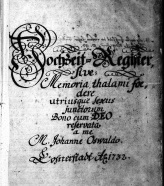 Hochzeit-Register,
sive
Memoria thalami foe,
dere
utriusque sexus
junctorum
Bono cum DEO
reservata
a me
M. Johanne Oswaldo